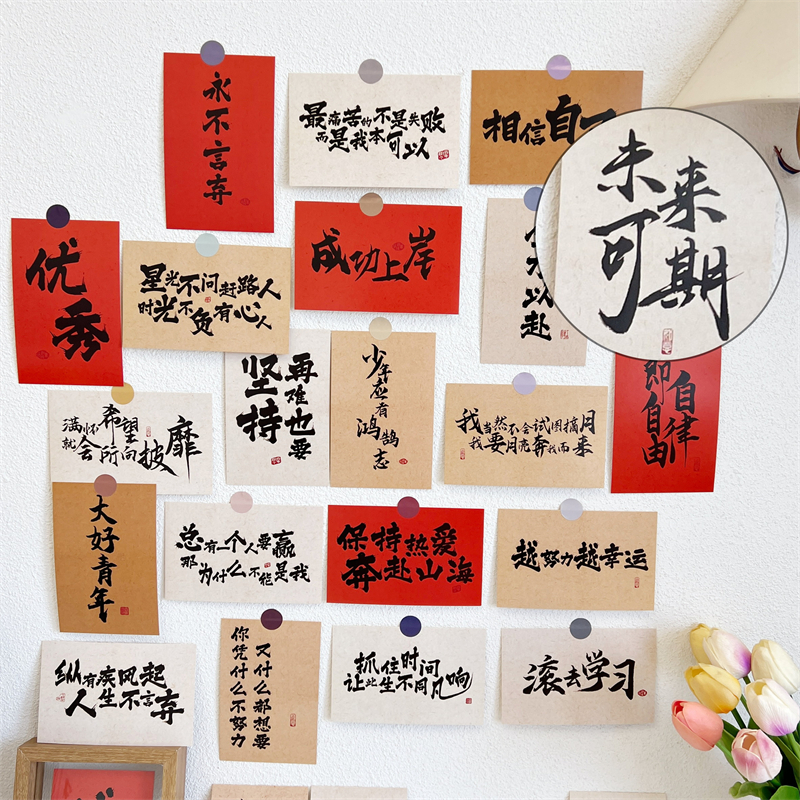 永不言弃
最痛苦的不是失败
而是我本可以
相信自
未来
可期
优秀
星光不问赶路人
时光不负有心人
成功上岸
以赴
再难也要
坚持
少年应有
鸿鹄志
我当然不会试图摘月
我要月亮奔我而来
自律
即自由
满怀希望
就会所向披靡
大好青年
总有一个人要赢
那为什么不能是我
保持热爱
奔赴山海
越努力越幸运
纵有疾风起
人生不言弃
又什么都想要
你凭什么不努力
抓住时间
让此生不同凡响
滚去学习